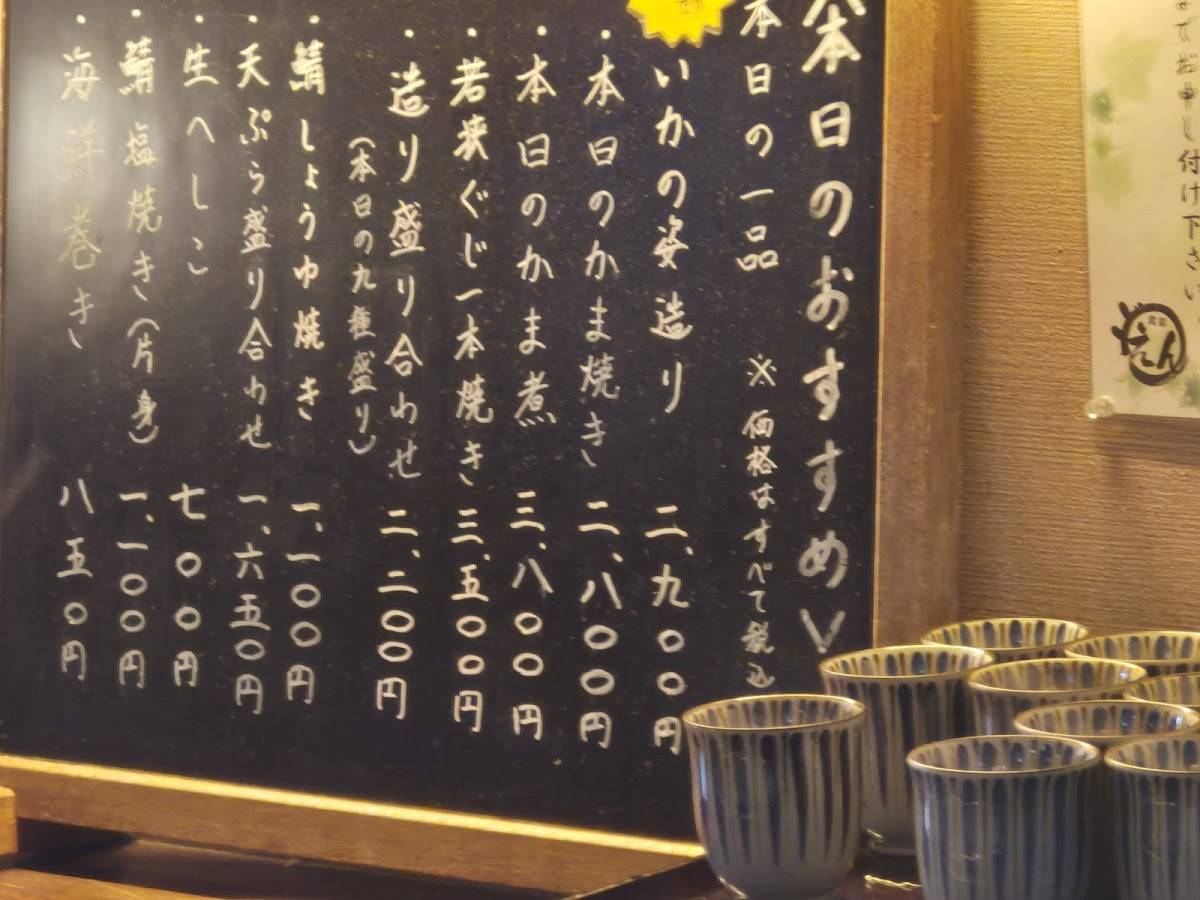 本日のおすすめ
本日の一品 ※価格はすべて税込
いかの姿造り 二、九〇〇円
・本日のかま焼き 二、八〇〇円
・本日のかま煮 三、八〇〇円
・若狭ぐじ一本焼き 三、五〇〇円
・造り盛り合わせ 二、二〇〇円
（本日の九種盛り）
・鯖しょうゆ焼き 一、一〇〇円
・天ぷら盛り合わせ 一、六五〇円
・生へしこ 七〇〇円
・鯖塩焼き（片身） 一、一〇〇円
・海鮮巻き 八五〇円
申し付け下さい
えん